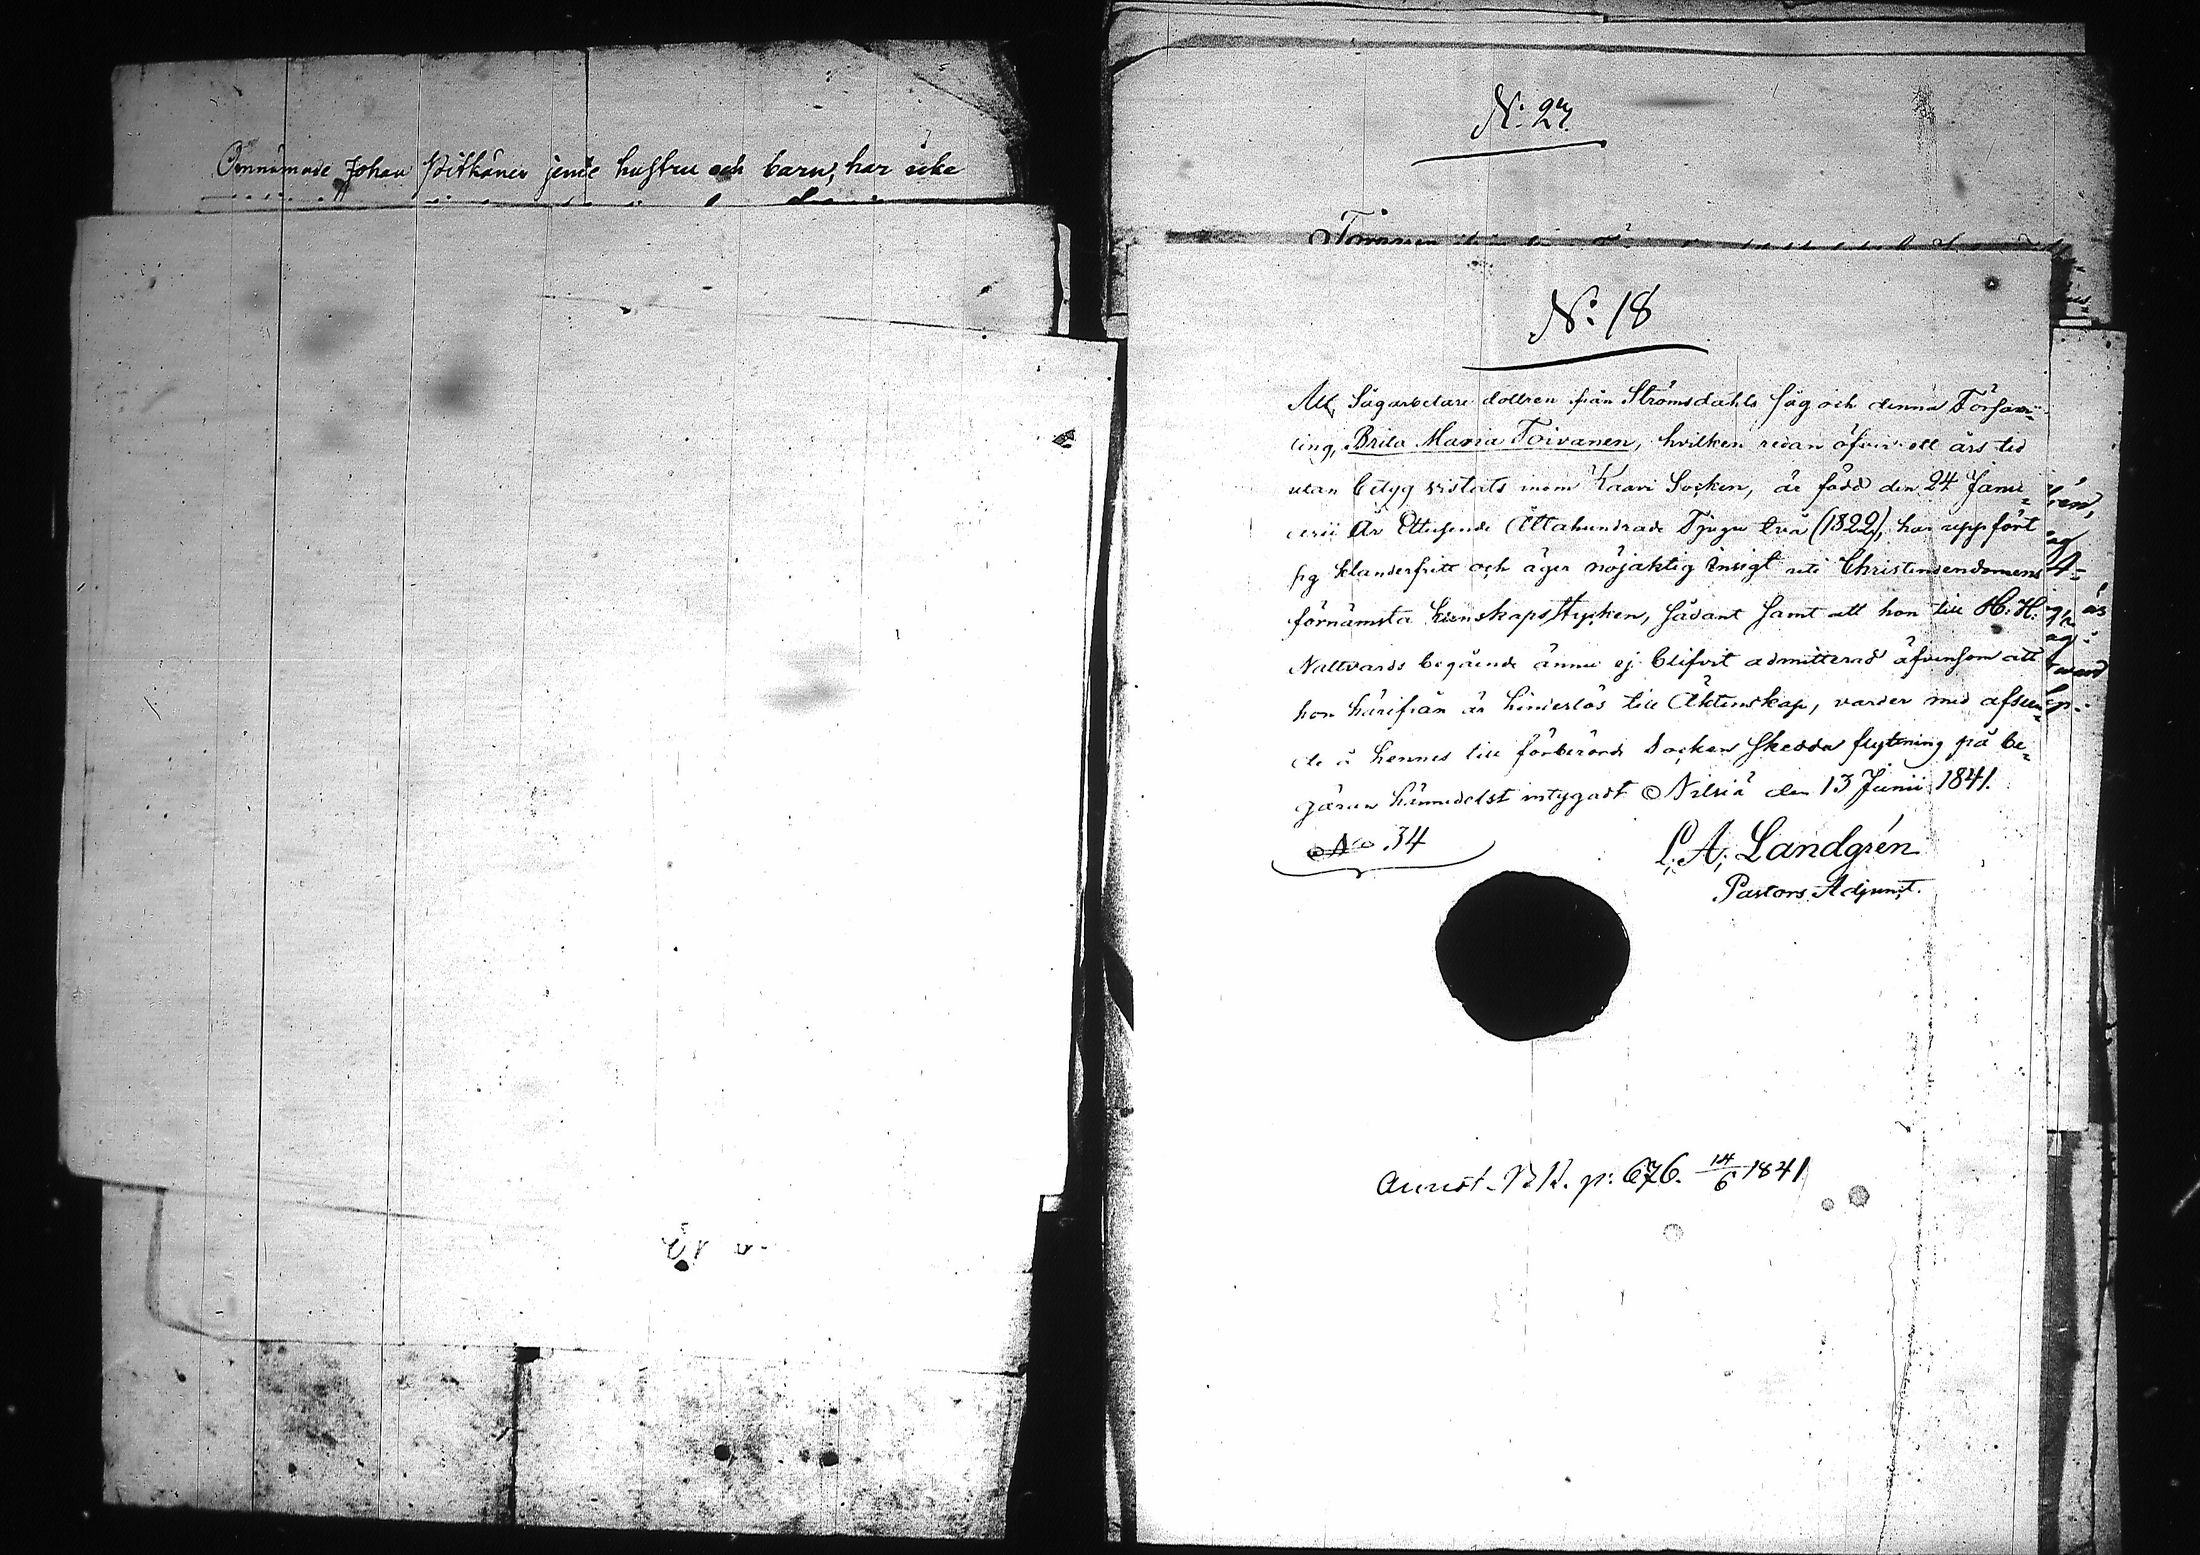 Omnämnde Johan Pitkänen jemte hustru och barn, har icke
N: 27.
N: 18
Att Sågarbetare dottren från Strömsdahls Såg och denna Försam-
ling, Brita Maria Toivanen, hvilken redan öfver ett års tid
utan betyg vistats inom Kaavi Socken, är född den 24 Janu-
arii År Ettusende Åttahundrade Tjugu två (1822), har uppfört
sig klanderfritt och äger nöjaktig insigt uti Christendomens
förnämsta kunskapsstycken, sådant samt att hon till H: H:
Nattvards begående ännu ej blifvit admitterad äfvensom att
hon härifrån är hinderlös till Äktenskap, varder med afseen-
de å hennes till förberörde Socken skedda flyttning på be-
gäran härmedelst intygadt Nilsiä den 13 Junii 1841.
No 34
L. A. Landgrén
Pastors Adjunct.
p: 676. 14/6 1841